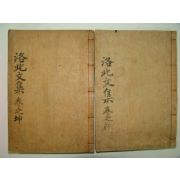 洛北文集 卷之坤
洛北文集 卷之